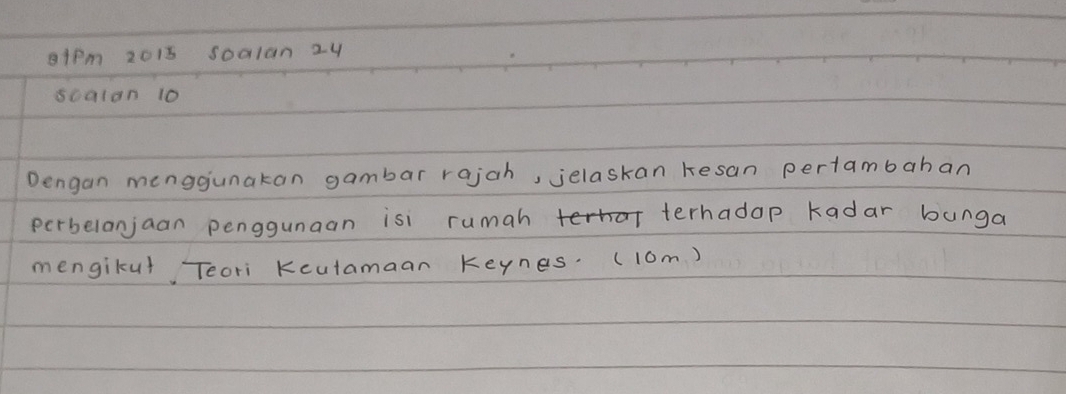 stpm 2015 soalan 24
soalan 10
Dengan menggunakan gambar rajah, jelaskan kesan pertambahan
perbelanjaan penggunaan isi rumah terhadap kadar bunga
mengikut Teori Keutamaan Keynes. (10m)